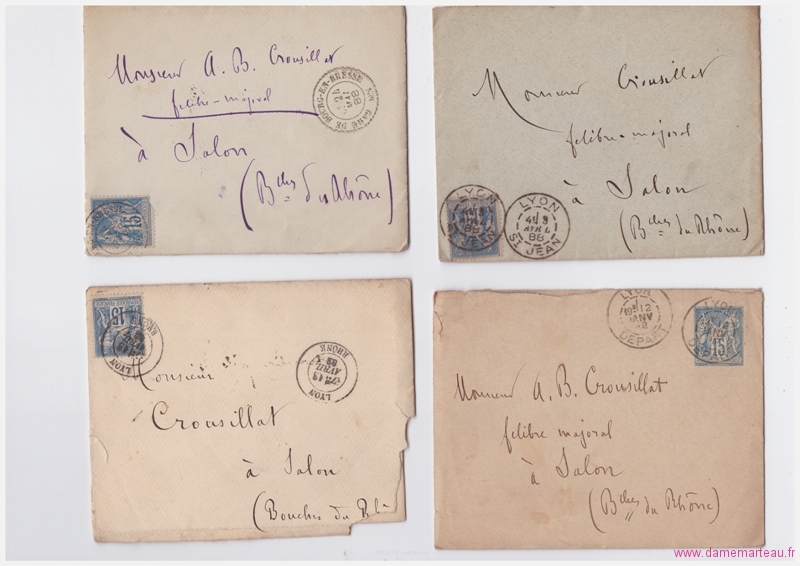 Monsieur A. B. Crousillat
félibre-majoral
à Salon
(Bches du Rhône)
GARE DE BOURG-EN-BRESSE
88
15
Monsieur Crousillat
félibre-majoral
à Salon
(Bches du Rhône)
LYON
88
ST JEAN
LYON
4E/ 9
AVRIL
88
ST JEAN
15
LYON
Monsieur
Crousillat
à Salon
(Bouches du Rh
LYON
AVRIL
RHONE
LYON
12
JANV
DEPART
LYON
15
Monsieur A. B. Crousillat
félibre majoral
à Salon
(Bches du Rhône)
www.damemarteau.fr